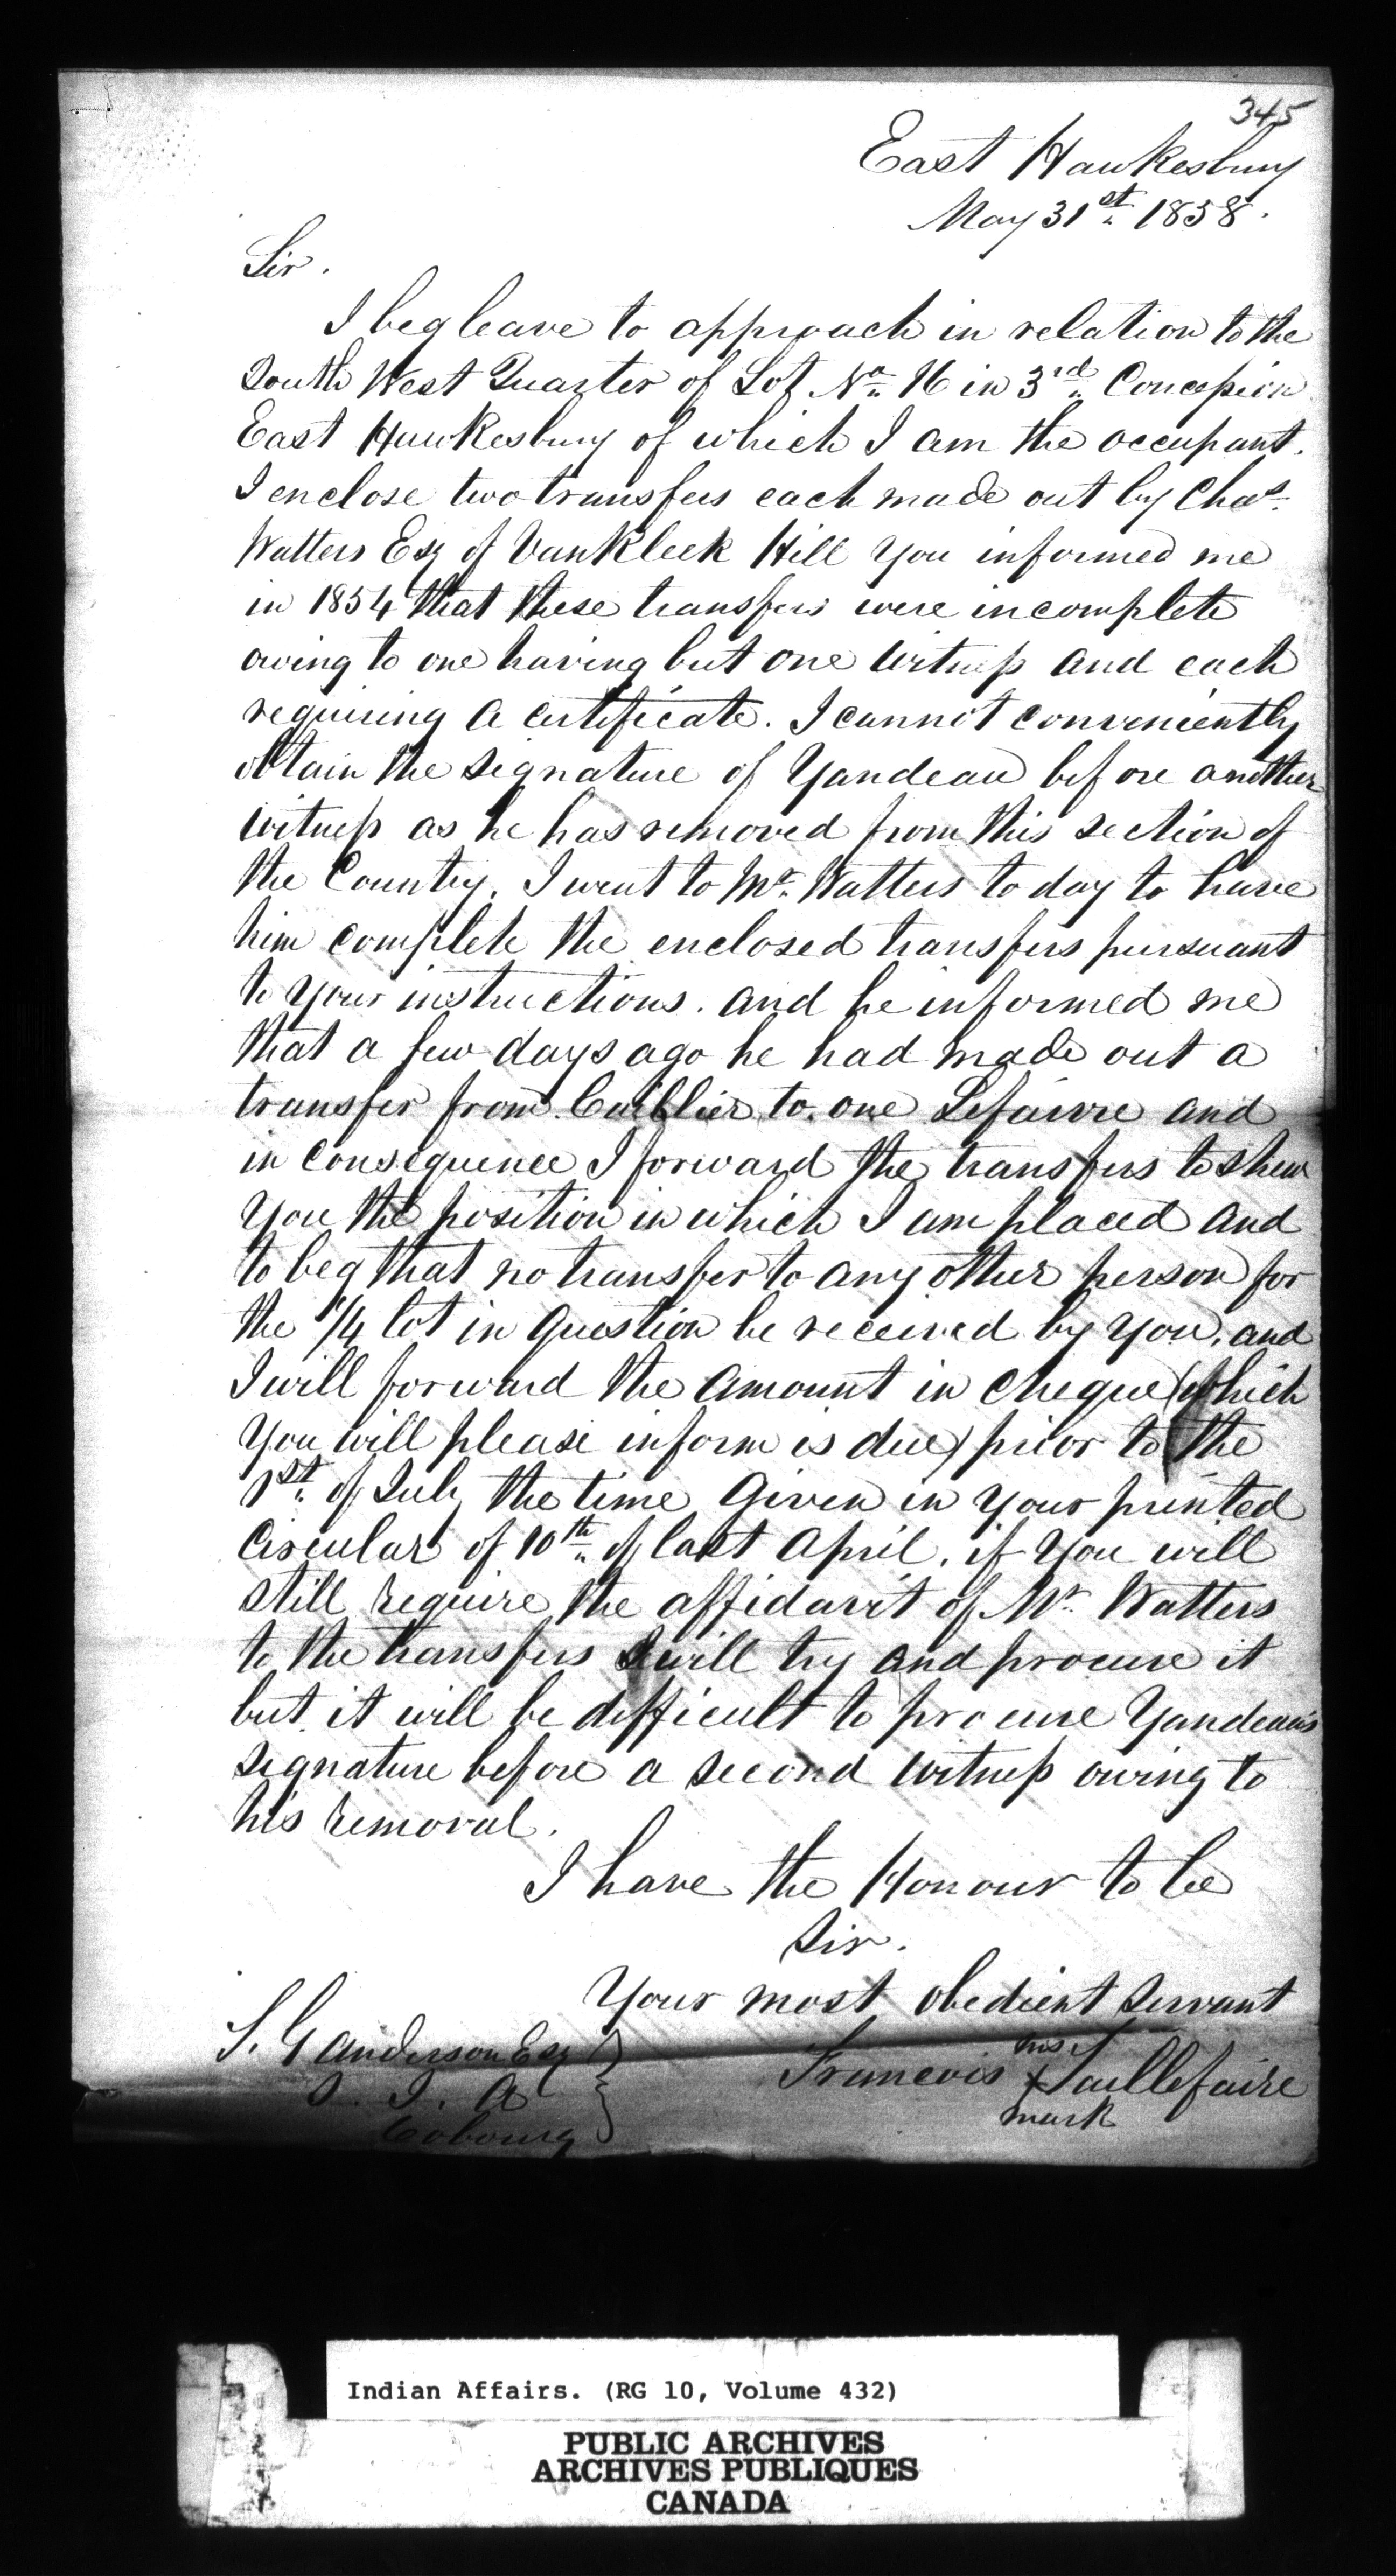 345
East Hawkesbury
May 31st. 1858.
Sir.
I beg leave to approach in relation to the
South West Quarter of Lot No. 16 in 3rd. Concession
East Hawkesbury of which I am the occupant.
I enclose two transfers each made out by Chas.
Watters Esq of Vankleek Hill You informed me
in 1854 that these transfers were incomplete
owing to one having but one Witness and each
requiring a certificate. I cannot conveniently
obtain the signature of Yandeau before another
Witness as he has removed from this section of
the Country. I went to Mr. Watters to day to have
him complete the enclosed transfers pursuant
to Your instructions. and he informed me
that a few days ago he had made out a
transfer from Cuiblier to one Lefaivre and
in consequence I forward the transfers to shew
You the position in which I am placed and
to beg that no transfer to any other person for
the 1/4 lot in Question be received by You, and
I will forward the amount in cheque (which
You will please inform is due) prior to the
1st. of July the time Given in Your printed
Circular of 10th. of last April. if You will
still require the affidavit of Mr. Watters
to the transfers I will try and procure it
but it will be difficult to procure Yandeau's
signature before a second Witness owing to
his removal.
I have the Honour to be
Sir.
Your most obedient Servant
S. G Anderson Esq
S. I. A
Cobourg
his
Francois X Taillefaire
mark
Indian Affairs. (RG 10, Volume 432)
PUBLIC ARCHIVES
ARCHIVES PUBLIQUES
CANADA